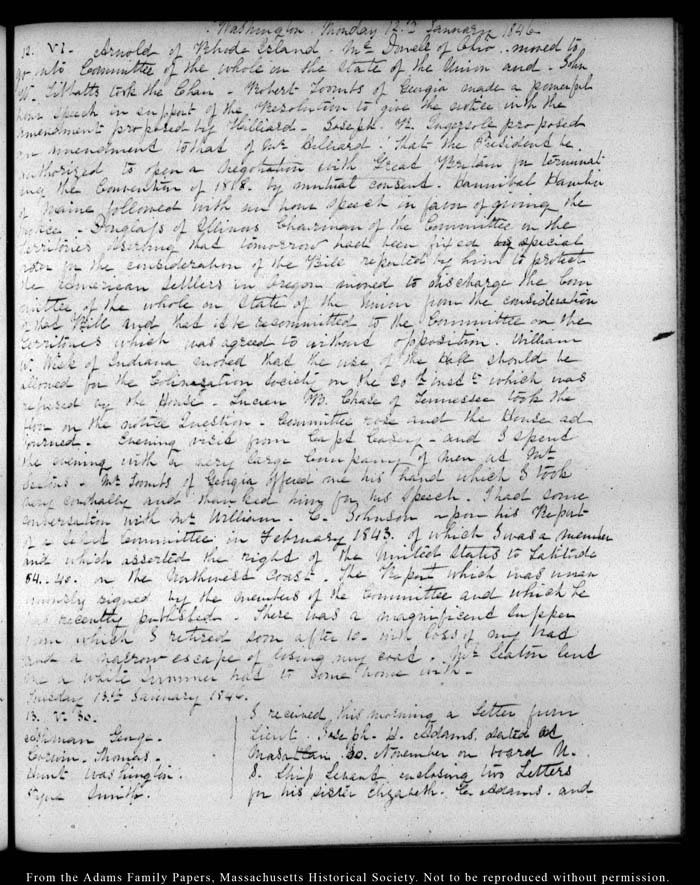 Washington. Monday 12th January 1846
12. VI. Arnold of Rhode Island - Mr Dowell of Ohio. moved to
go into Committee of the whole on the state of the Union and - John
W. Tibbatts took the Chair - Robert Toombs of Georgia made a powerful
hour speech in support of the Resolution to give the notice with the
amendment proposed by Hilliard - Joseph R. Ingersoll proposed
an amendment to that of Mr Hilliard. That the President be.
authorized to open a negotiation with Great Britain for terminat-
ing the Convention of 1818. by mutual consent. Hannibal Hamlin
of Maine followed with an hour speech in favor of giving the
notice - Douglass of Illinois Chairman of the Committee on the
Territories observing that tomorrow had been fixed by special
order for the consideration of the Bill reported by him to protect
the American Settlers in Oregon moved to discharge the Com
mittee of the whole on State of the Union from the consideration
of that Bill and that it be recommitted to the Committee on the
Territories which was agreed to without opposition. William
W. Wick of Indiana moved that the use of the Hall should be
allowed for the Colonization Society on the 20th instt which was
refused by the House - Lucien B. Chase of Tennessee took the
floor on the notice Question - Committee rose and the House ad
journed. Evening visit from Capt Casey - and I spent
the evening with a very large Company of men at Mr
Seatons - Mr Toombs of Georgia offered me his hand which I took
very cordially and thanked him for his speech. I had some
conversation with Mr William. C. Johnson upon his Report
of a Select Committee in February 1843. of which I was a member
and which asserted the right of the United States to Latitude
54.. 40. on the Northwest Coast. The Report which was unan
imously signed by the members of the Committee and which he
has recently published - There was a magnificent Supper
from which I retired soon after 10. with loss of my hat
and a narrow escape of losing my coat. Mr Seaton lent
me a white summer hat to come home with -
Tuesday 13th January 1846.
13. V. 30. I received this morning a Letter from
Ashman Geog. Lieut. Joseph. H. Adams, dated at
Corwin. Thomas. Mazatlan 30. November on board U.
Hunt Washington. S. Ship Levant enclosing two Letters
Smith. for his sister Elizabeth. C. Adams. and
From the Adams Family Papers, Massachusetts Historical Society. Not to be reproduced without permission.